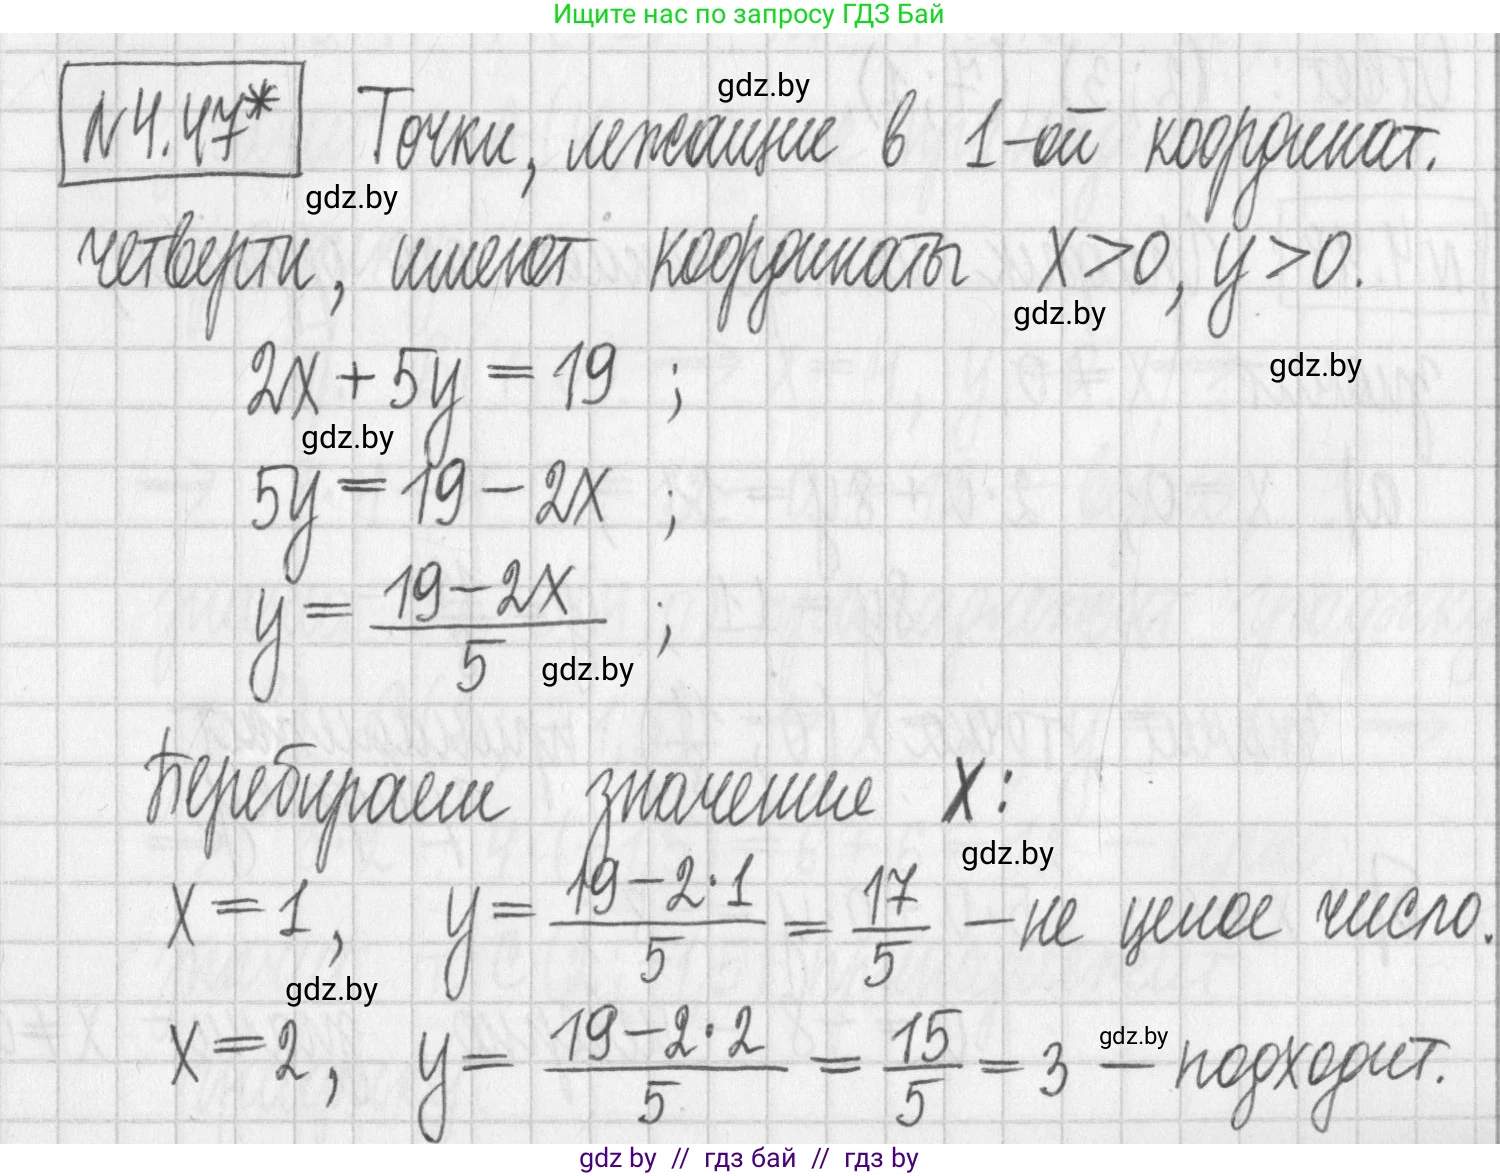 Ищите нас по запросу ГДЗ Бай
N4.47* Точки, лежащие в 1-ой координат.
gdz.by
gdz.by
четверти, имеют координаты x>0, y>0.
gdz.by
2x+5y=19 ;
gdz.by
gdz.by
5y=19-2x ;
y = (19-2x)/5 ;
gdz.by
Перебираем значение x:
gdz.by
x=1, y = (19-2·1)/5 = 17/5 – не целое число.
gdz.by
x=2, y = (19-2·2)/5 = 15/5 = 3 – подходит.
gdz.by
gdz by // гдз бай // гдз by